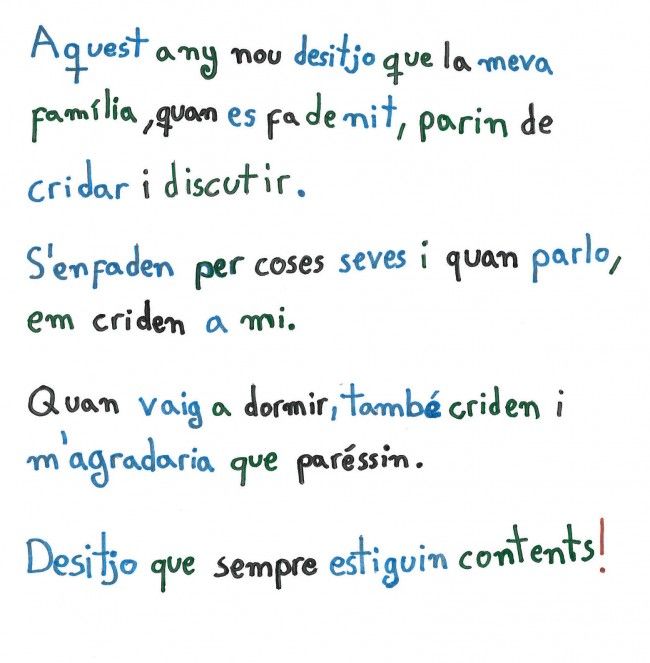 Aquest any nou desitjo que la meva
família, quan es fa de nit, parin de
cridar i discutir.
S'enfaden per coses seves i quan parlo,
em criden a mi.
Quan vaig a dormir, també criden i
m'agradaria que paréssin.
Desitjo que sempre estiguin contents!